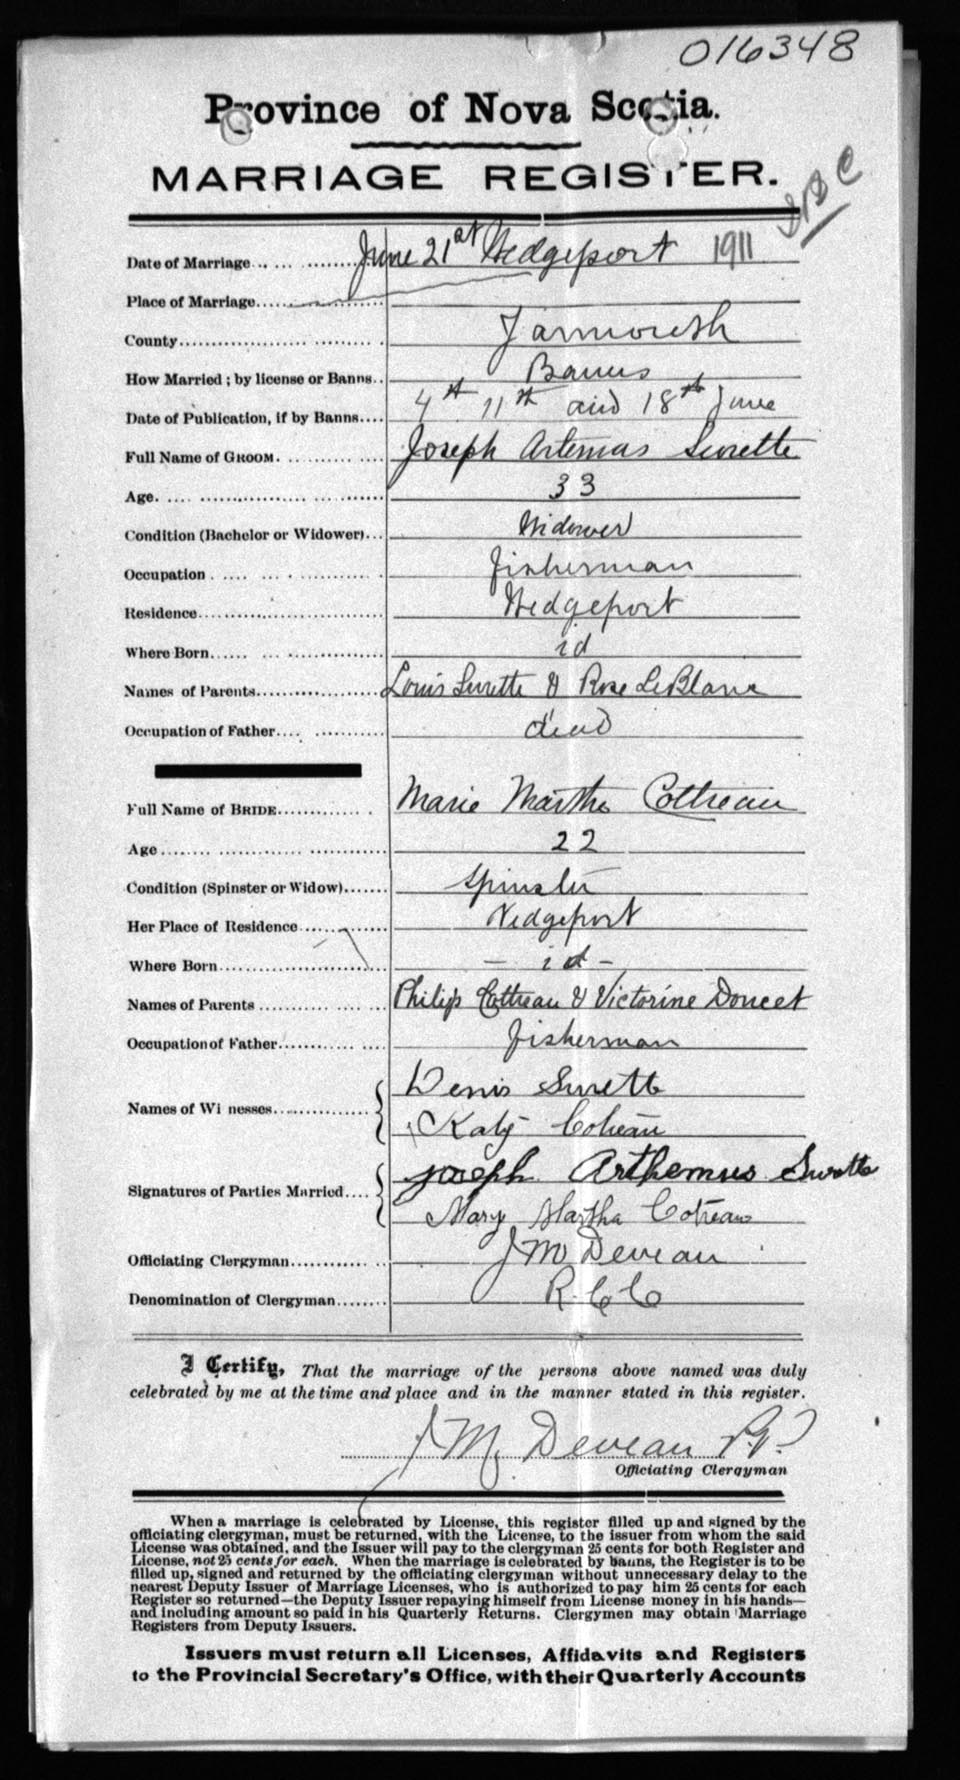 016348
Province of Nova Scotia.
MARRIAGE REGISTER.
Date of Marriage... June 21st Wedgeport 1911
Place of Marriage
County Yarmouth
How Married; by license or Banns.. Banns
Date of Publication, if by Banns.... 4th 11th and 18th June
Full Name of GROOM. Joseph Artemas Surette
Age. 33
Condition (Bachelor or Widower)... Widower
Occupation Fisherman
Residence Wedgeport
Where Born id
Names of Parents Louis Surette & Rose LeBlanc
Occupation of Father dead
Full Name of BRIDE Marie Martha Cottreau
Age 22
Condition (Spinster or Widow) Spinster
Her Place of Residence Wedgeport
Where Born - id -
Names of Parents Philip Cottreau & Victorine Doucet
Occupation of Father fisherman
Denis Surette
Names of Wi nesses
Katy Cotreau
Joseph Arthemus Surette
Signatures of Parties Married....
Mary Martha Cotreau
Officiating Clergyman J M Deveau
Denomination of Clergyman R. C. C
I Certify, That the marriage of the persons above named was duly
celebrated by me at the time and place and in the manner stated in this register.
J M. Deveau P.P.
Officiating Clergyman
When a marriage is celebrated by License, this register filled up and signed by the
officiating clergyman, must be returned, with the License, to the issuer from whom the said
License was obtained, and the Issuer will pay to the clergyman 25 cents for both Register and
License, not 25 cents for each. When the marriage is celebrated by banns, the Register is to be
filled up, signed and returned by the officiating clergyman without unnecessary delay to the
nearest Deputy Issuer of Marriage Licenses, who is authorized to pay him 25 cents for each
Register so returned—the Deputy Issuer repaying himself from License money in his hands—
and including amount so paid in his Quarterly Returns. Clergymen may obtain Marriage
Registers from Deputy Issuers.
Issuers must return all Licenses, Affidavits and Registers
to the Provincial Secretary's Office, with their Quarterly Accounts